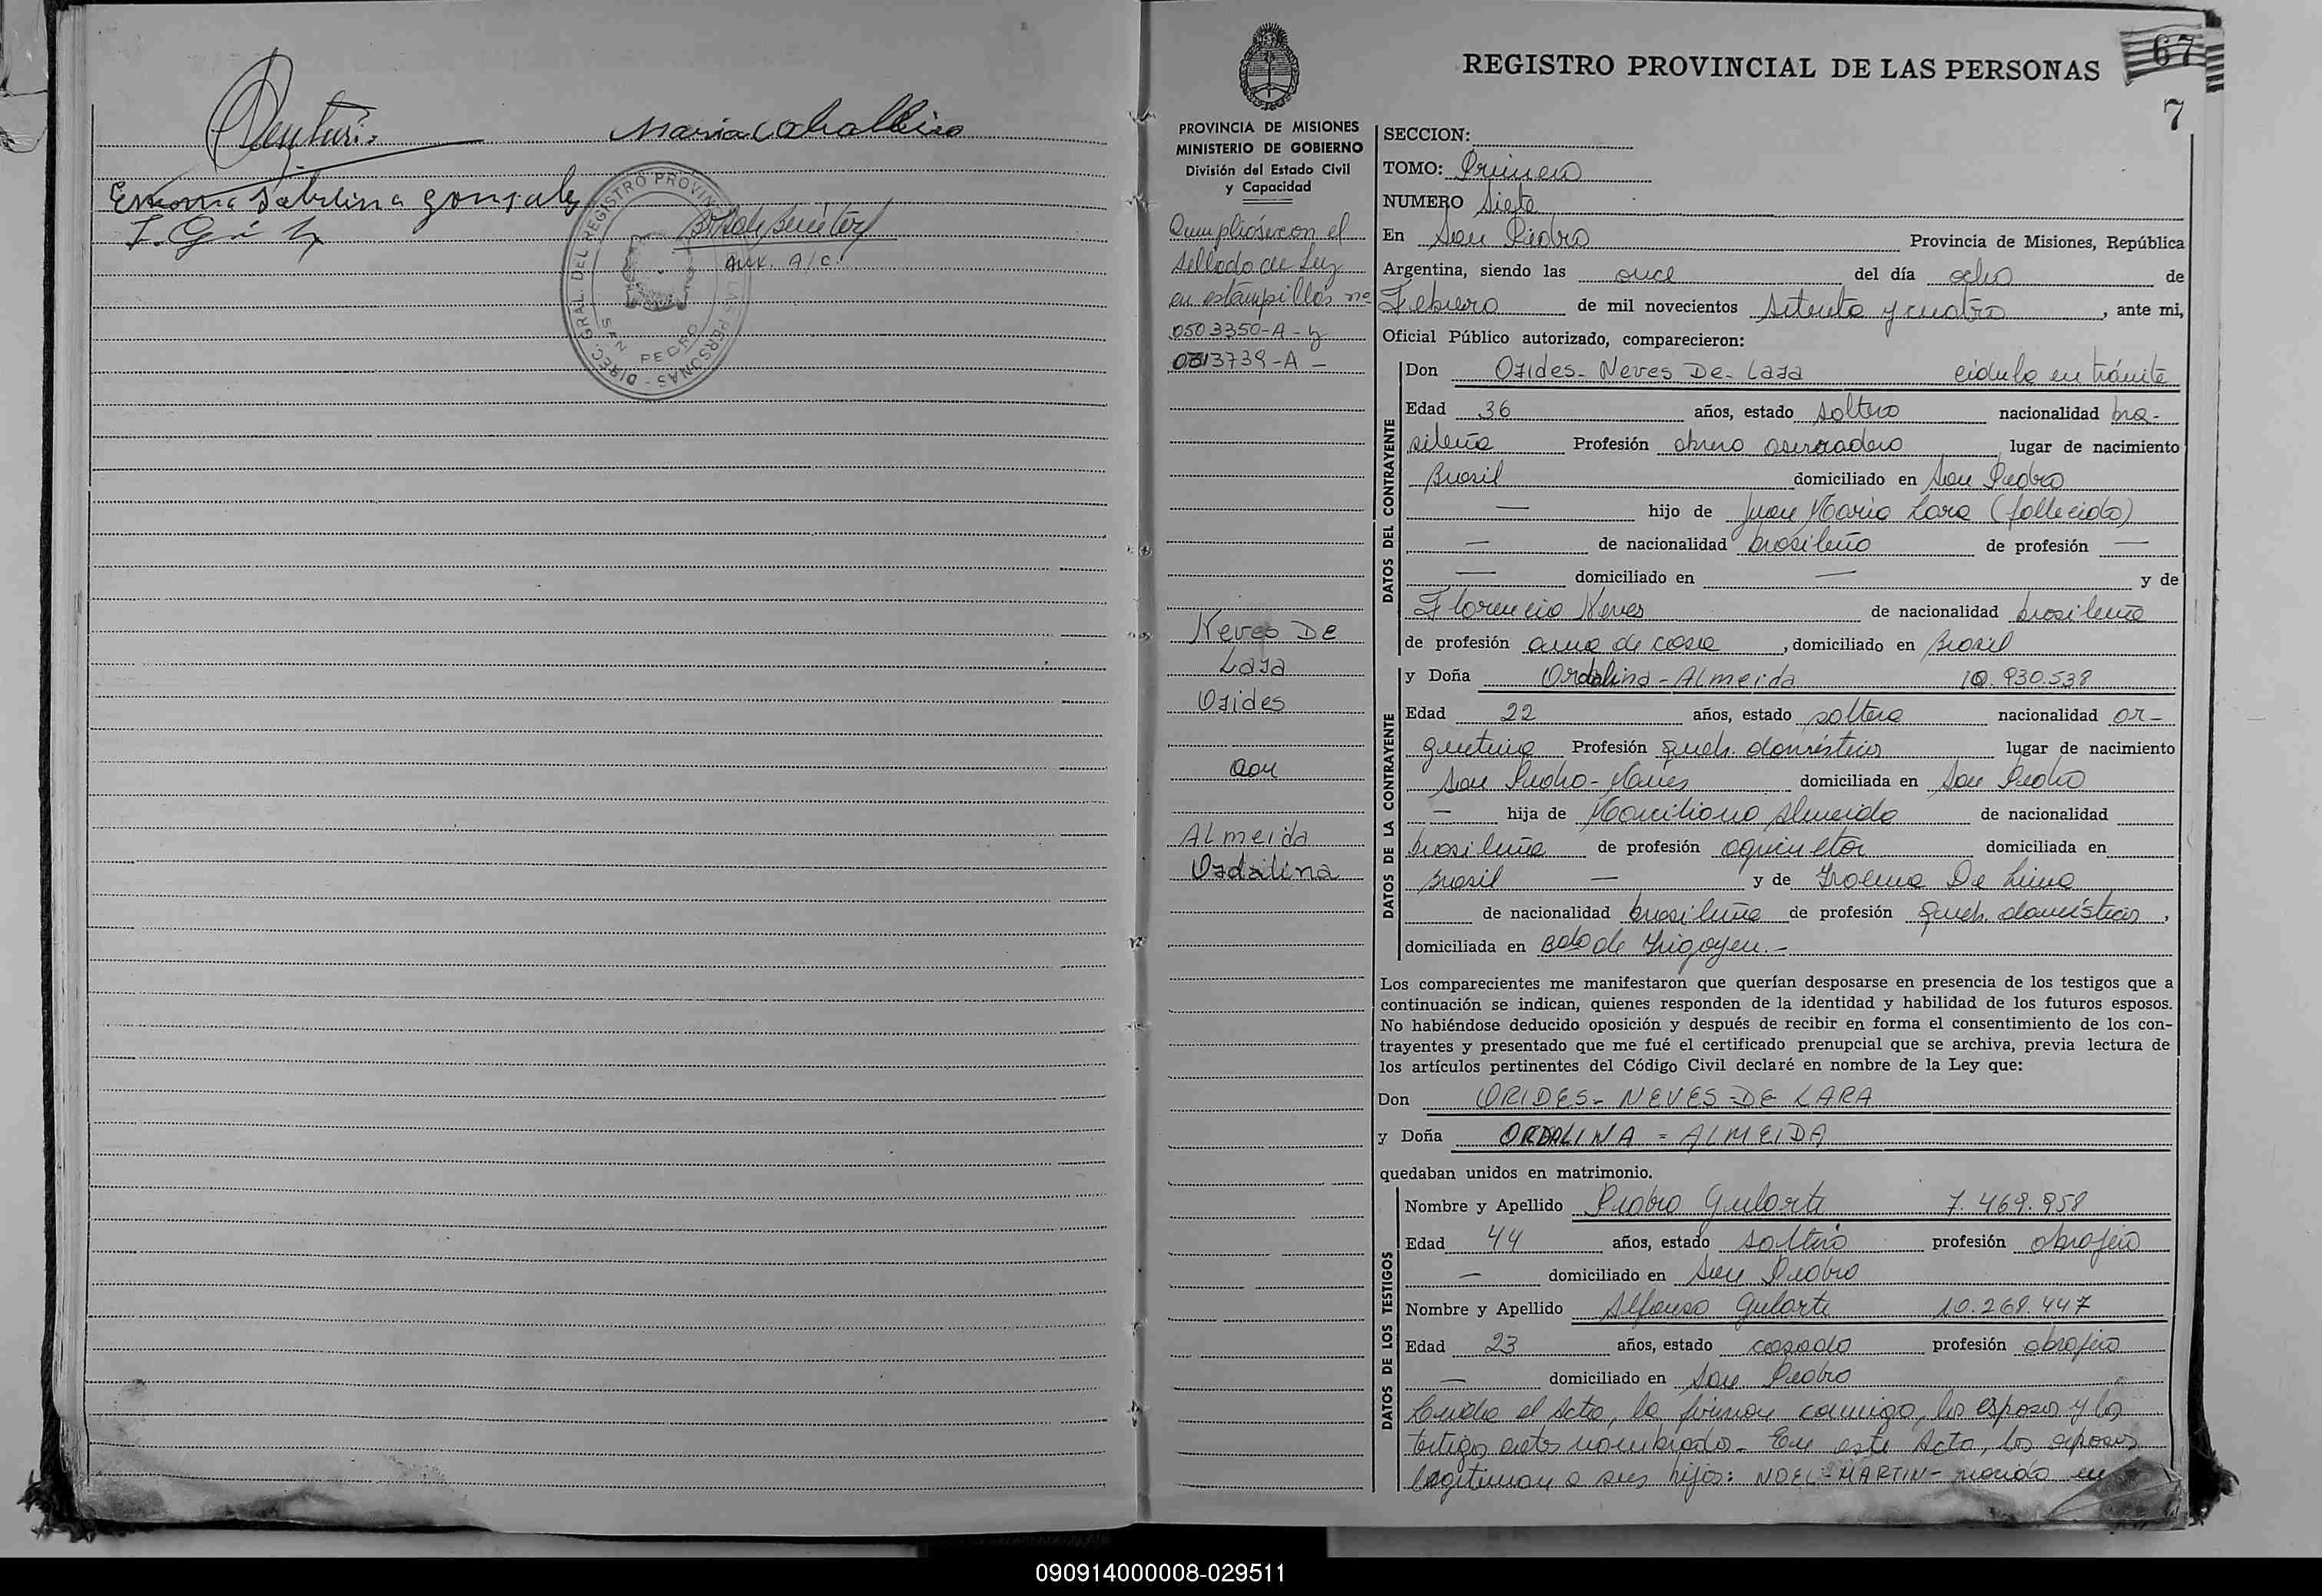 Maria Caballeiro
Emoma Sabelina gonsalez
Aux. A/C.
DIREC. GRAL. DEL REGISTRO PROVINCIAL DE LAS PERSONAS
SAN PEDRO
REGISTRO PROVINCIAL DE LAS PERSONAS
67
7
PROVINCIA DE MISIONES
MINISTERIO DE GOBIERNO
División del Estado Civil
y Capacidad
Cumplióse con el
sellado de Ley
en estampillas nº
0503350-A - y
0313739-A -
Neves De
Lara
Orides
con
Almeida
Ordalina
SECCION:
TOMO: Primero
NUMERO Siete
En San Pedro Provincia de Misiones, República
Argentina, siendo las once del día ocho de
Febrero de mil novecientos setenta y cuatro, ante mi,
Oficial Público autorizado, comparecieron:
DATOS DEL CONTRAYENTE
Don Orides- Neves De- Lara cédula en trámite
Edad 36 años, estado soltero nacionalidad bra-
sileña Profesión obrero aserradero lugar de nacimiento
Brasil domiciliado en San Pedro
— hijo de Juan Maria Lara (fallecido)
— de nacionalidad brasileño de profesión —
— domiciliado en — y de
Florencia Neves de nacionalidad brasileña
de profesión ama de casa, domiciliado en Brasil
DATOS DE LA CONTRAYENTE
y Doña Ordalina - Almeida 10.930.538
Edad 22 años, estado soltera nacionalidad ar-
gentina Profesión queh. domésticos lugar de nacimiento
San Pedro - Mnes domiciliada en San Pedro
— hija de Marciliano Almeida de nacionalidad
brasileña de profesión agricultor domiciliada en
Brasil — y de Irolema De Lima
de nacionalidad brasileña de profesión queh. domésticos,
domiciliada en Bdo de Irigoyen.-
Los comparecientes me manifestaron que querían desposarse en presencia de los testigos que a
continuación se indican, quienes responden de la identidad y habilidad de los futuros esposos.
No habiéndose deducido oposición y después de recibir en forma el consentimiento de los con-
trayentes y presentado que me fué el certificado prenupcial que se archiva, previa lectura de
los artículos pertinentes del Código Civil declaré en nombre de la Ley que:
Don ORIDES- NEVES-DE LARA
y Doña ORDALINA = ALMEIDA
quedaban unidos en matrimonio.
DATOS DE LOS TESTIGOS
Nombre y Apellido Pedro Gularte 7.469.958
Edad 44 años, estado soltero profesión obrajero
— domiciliado en San Pedro
Nombre y Apellido Alfonso Gularte 10.269.447
Edad 23 años, estado casado profesión obrajero
— domiciliado en San Pedro
Leída el Acta, la firman conmigo, los esposos y los
testigos antes nombrados- En este Acto, los esposos
legitiman a sus hijos: NOEL-MARTIN- nacido en
090914000008-029511